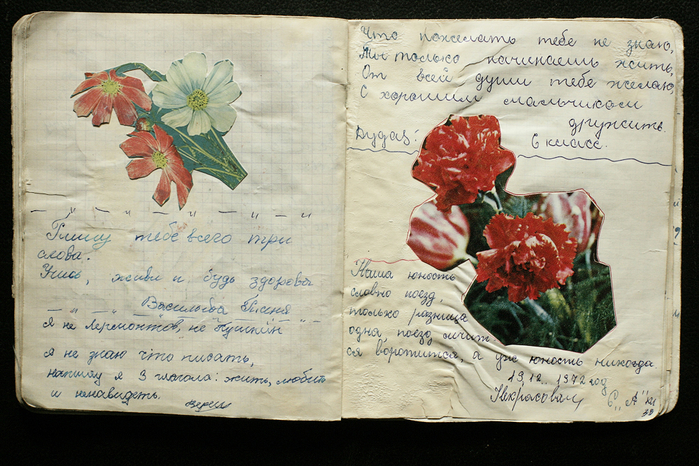 Пишу тебе всего три
слова:
живи и будь здорова
Васильева
Я не Лермонтов, не Пушкин
Я не знаю что писать,
напишу я 3 глагола: жить, любить
и ненавидеть.
Что пожелать тебе не знаю,
Ты только начинаешь жить,
От всей души тебе желаю
С хорошим мальчиком
дружить.
6 класс.
Наша юность
словно поезд,
только разница
одна поезд мчит
ся воротится, а уже юность никогда
19.12. 1972 год
Некрасович 6 "А" кл